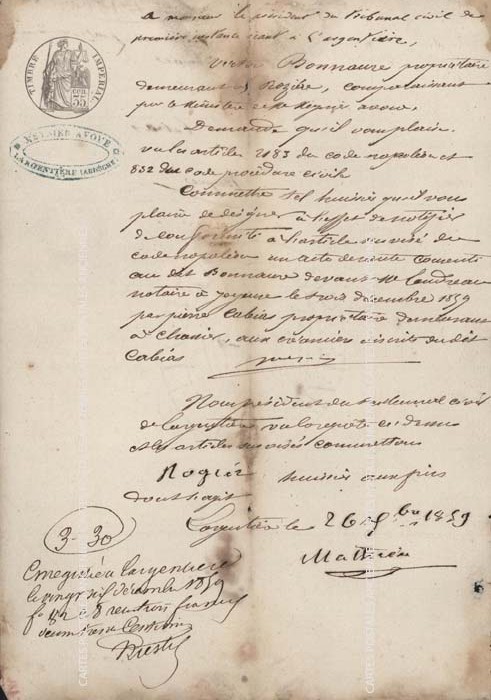 A monsieur le président du tribunal civil de
première instance séant à Largentière,
TIMBRE IMPÉRIAL
35
Victor Bonnaure propriétaire
demeurant à Rozière, comparaissant
par le Ministère de Me avoué.
AVOUÉ
LARGENTIÈRE (ARDÈCHE)
Demande qu'il vous plaise
vu les articles 2183 du code napoléon et
832 du code procédure civil
Commettre tel huissier qu'il vous
plaira de désigner à l'effet de notifier
conformité à l'article susvisé du
code napoléon un acte de vente consenti
au dit Bonnaure devant Me
notaire à Joyeuse le trois décembre 1859
par pierre Cabias propriétaire demeurant
à aux créanciers inscrits du dit
Cabias
Nous président du tribunal civil
de Largentière, vu la requête ci dessus
et les articles susvisés commettons
Rogier huissier aux fins
dont s'agit
Largentière le 26 Xbre 1859
Mathieu
3-30
Enregistré à Largentière
le vingt six décembre 1859
trois francs
centimes